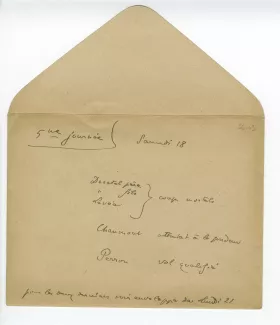 5me journée } Samedi 18
Decatel père
" fils } coups mortels
Levoir
Chaumont attentat à la pudeur
Perron vol qualifié
pour les deux dernières voir enveloppe du Lundi 21